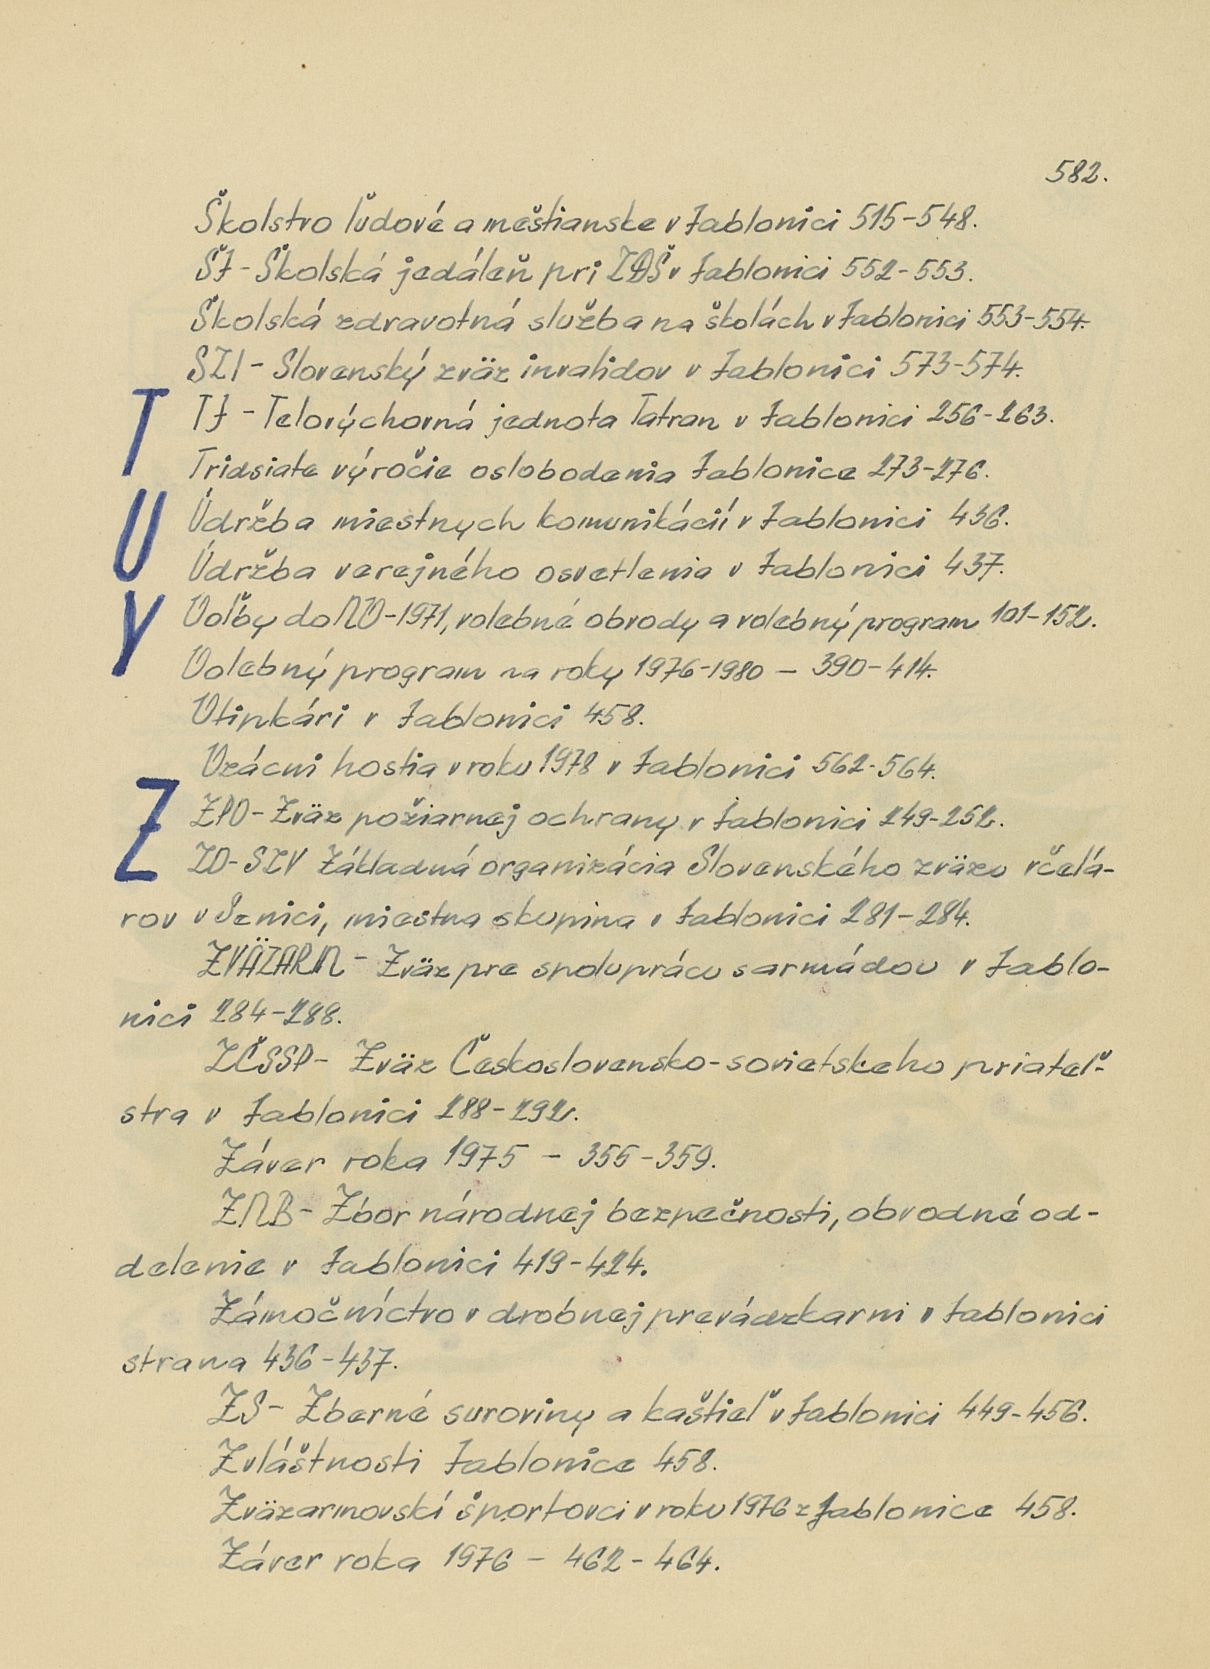 582.
Školstvo ľudové a meštianske v Jablonici 515-548.
ŠJ - Školská jedáleň pri ZDŠ v Jablonici 552-553.
Školská zdravotná služba na školách v Jablonici 553-554.
SZI - Slovenský zväz invalidov v Jablonici 573-574.
T TJ - Telovýchovná jednota Tatran v Jablonici 256-263.
Tridsiate výročie oslobodenia Jablonice 273-276.
U Údržba miestnych komunikácií v Jablonici 436.
Údržba verejného osvetlenia v Jablonici 437.
V Voľby do NV-1971, volebné obvody a volebný program 101-152.
Volebný program na roky 1976-1980 - 390-414.
Vtipkári v Jablonici 458.
Vzácni hostia v roku 1978 v Jablonici 562-564.
Z ZPO - Zväz požiarnej ochrany v Jablonici 249-252.
ZO-SZV Základná organizácia Slovenského zväzu včelá-
rov v Senici, miestna skupina v Jablonici 281-284.
ZVÄZARM - Zväz pre spoluprácu s armádou v Jablo-
nici 284-288.
ZČSSP - Zväz Československo-sovietskeho priateľ-
stva v Jablonici 288-292.
Záver roka 1975 - 355-359.
ZNB - Zbor národnej bezpečnosti, obvodné od-
delenie v Jablonici 419-424.
Zámočníctvo v drobnej prevádzkarni v Jablonici
strana 436-437.
ZS - Zberné suroviny a kaštieľ v Jablonici 449-456.
Zvláštnosti Jablonice 458.
Zväzarmovskí športovci v roku 1976 z Jablonice 458.
Záver roka 1976 - 462-464.